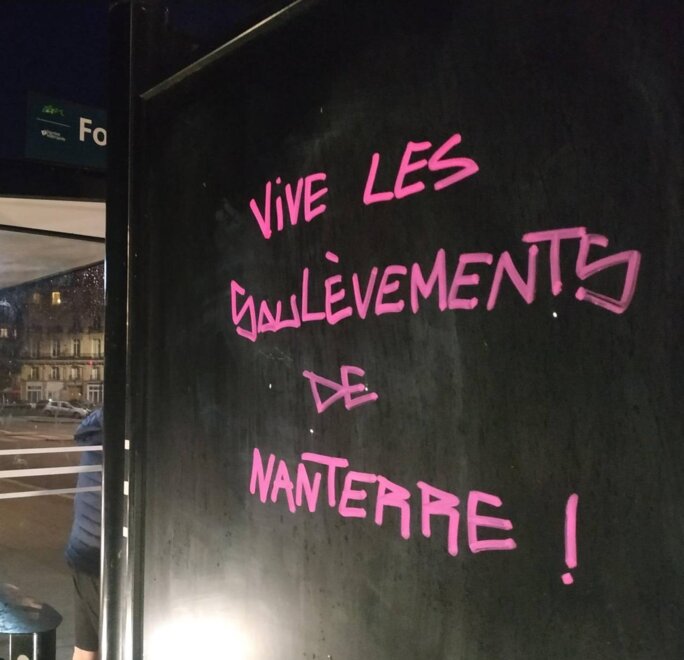 Fo
ViVE LES
SOULÈVEMENTS
DE
NANTERRE !